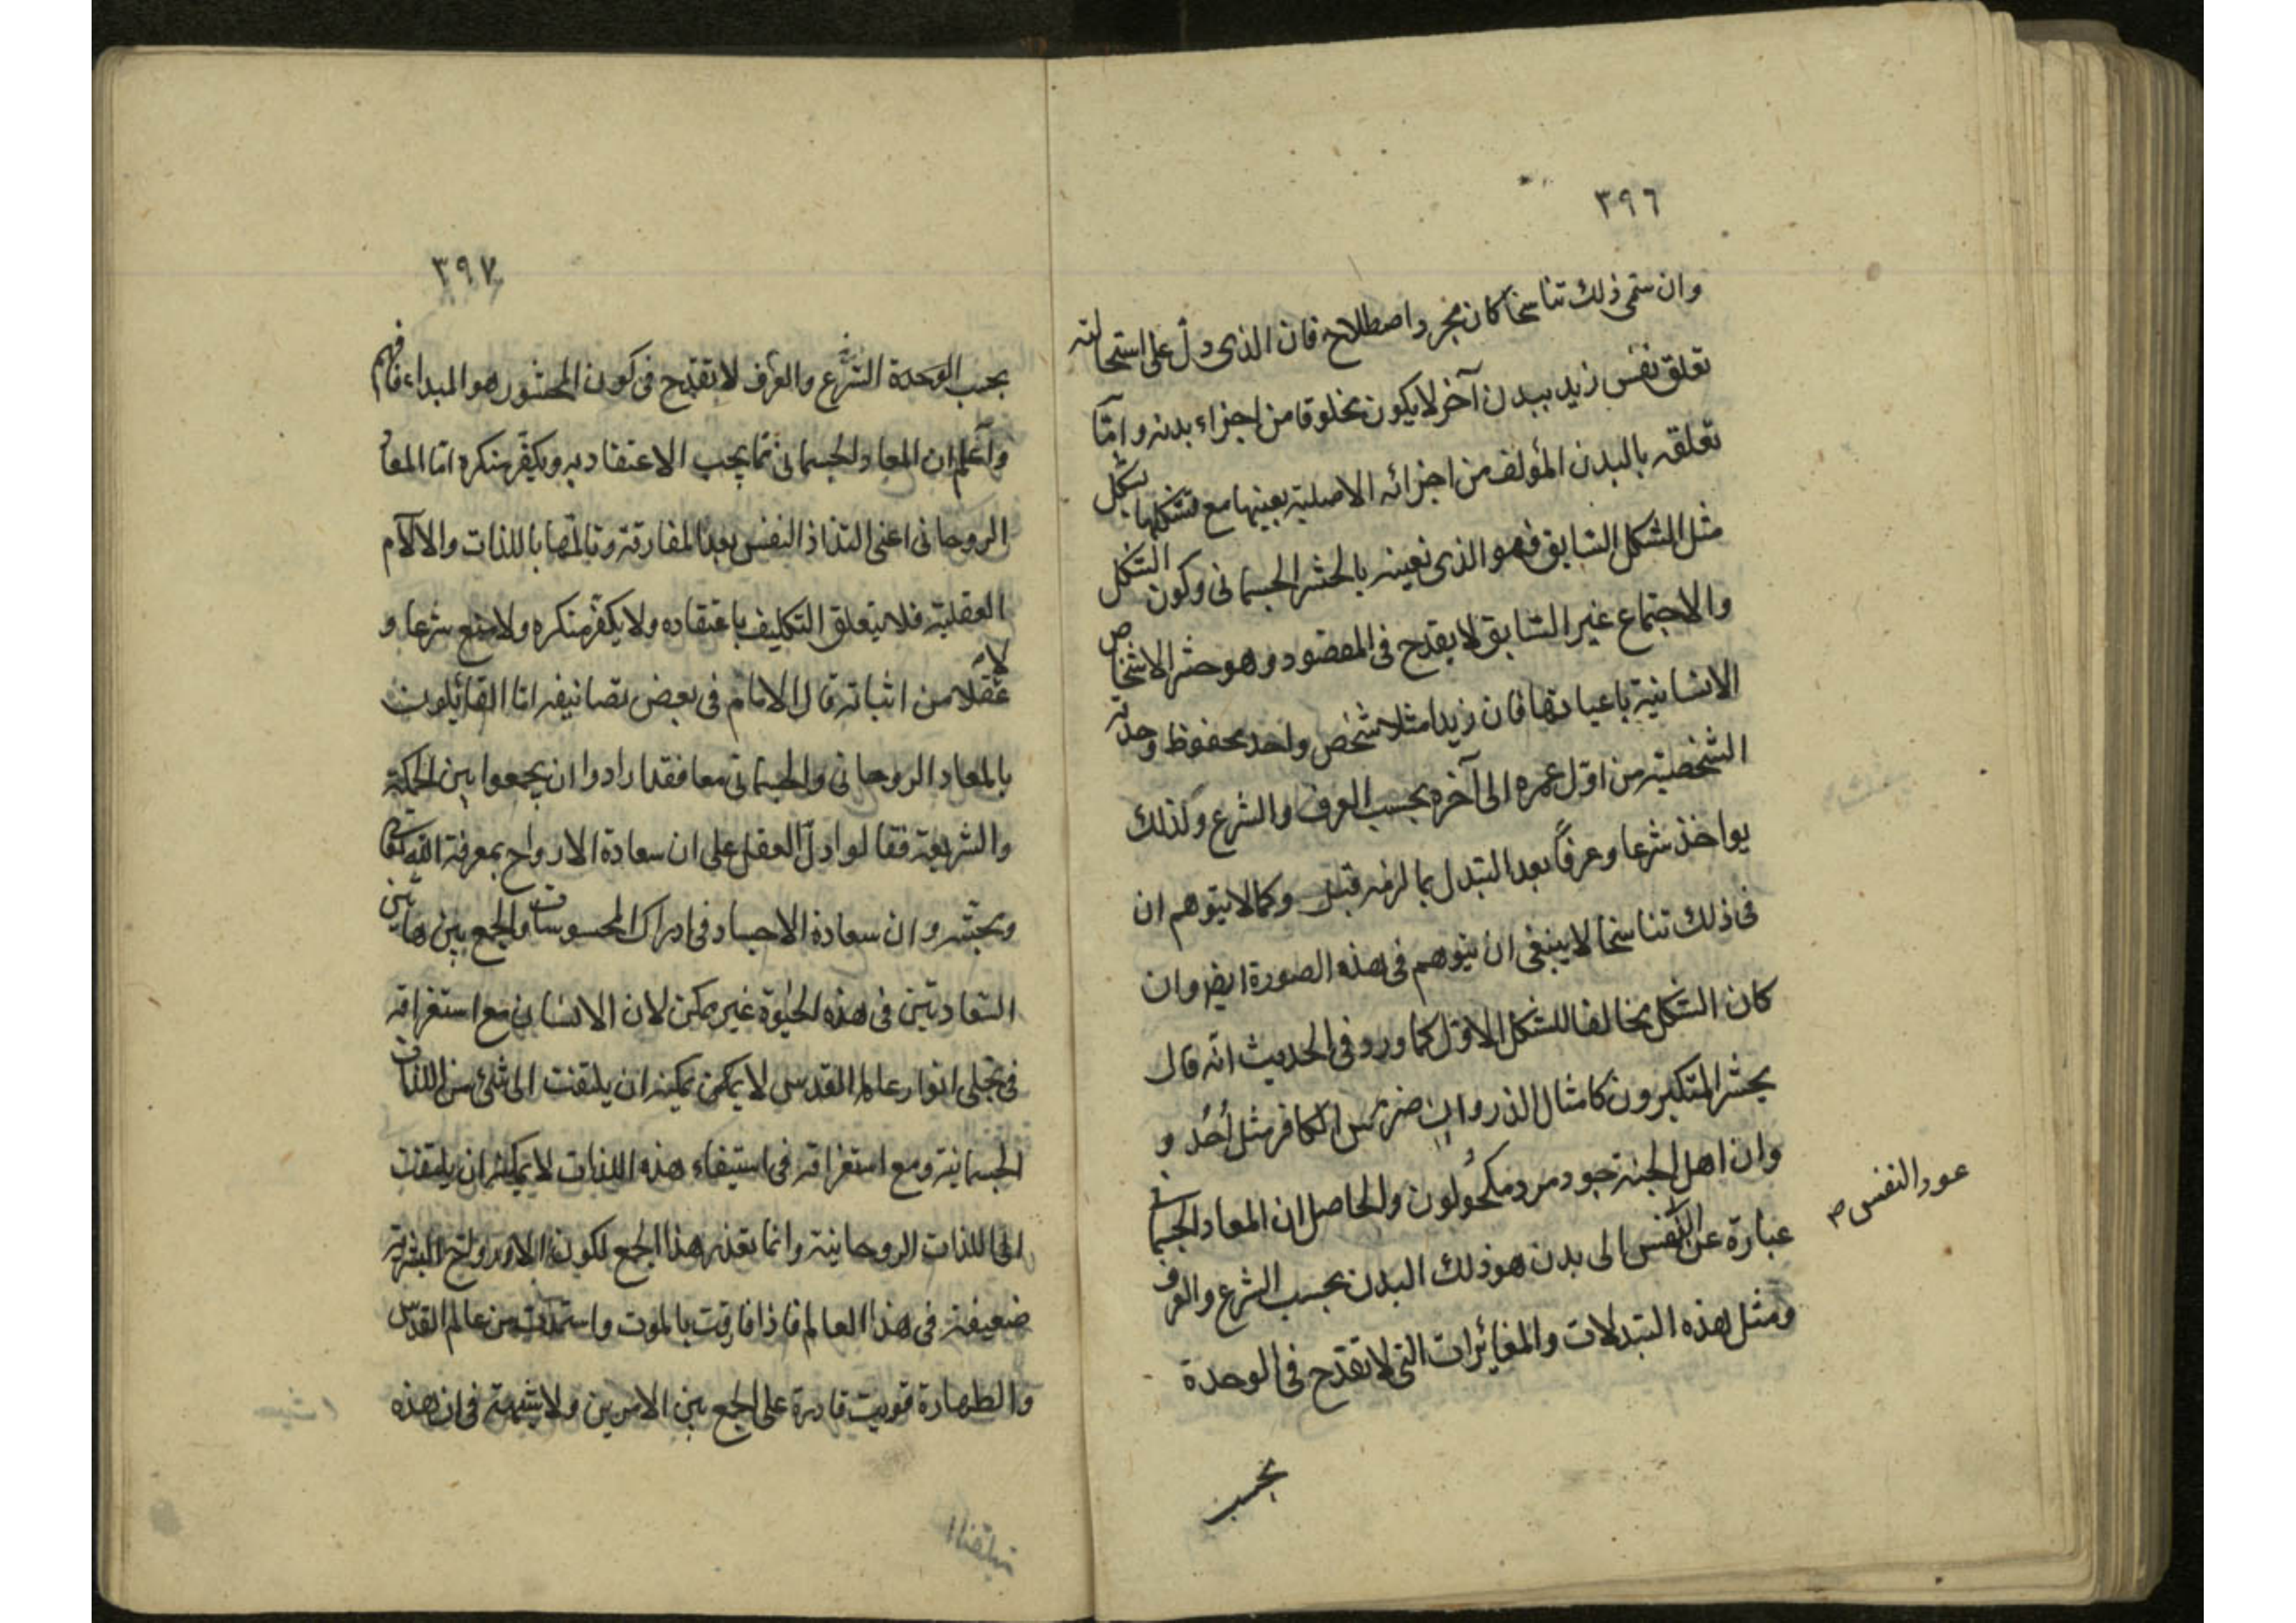 ٣٩٦
وان سمى ذلك تناسخا كان مجرد اصطلاح فان الذى دل على استحالته
تعلق نفس زيد ببدن آخر لا يكون مخلوقا من اجزاء بدنه وامّا
تعلقه بالبدن المؤلف من اجزائه الاصلية بعينها مع تشكلها بشكل
مثل الشكل السابق فهو الذى نعنيه بالحشر الجسمانى وكون الشكل
والاجتماع غير السابق لا يقدح فى المقصود وهو حشر الاشخاص
الانسانية باعيانها فان زيدا مثلا شخص واحد محفوظ وحدته
الشخصية من اوّل عمره الى آخره بحسب العرف والشرع ولذلك
يواخذ شرعا وعرفاً بعد التبدل بما لزمه قبل وكما لا يتوهم ان
فى ذلك تناسخا لا ينبغى ان يتوهم فى هذه الصورة ايضا وان
كان الشكل مخالفا للشكل الاوّل كما ورد فى الحديث انّه قال
يحشر المتكبرون كامثال الذر وان ضرس الكافر مثل اُحُد و
وان اهل الجنة جرد مرد مكحولون والحاصل ان المعاد الجسمانى
عبارة عن النفس الى بدن هو ذلك البدن بحسب الشرع والعرف
عود النفس ص
ومثل هذه التبدلات والمغايرات التى لا تقدح فى الوحدة
بحسب
٣٩٧
بحسب الوحدة الشرع والعرف لا تقدح فى كون المحشور هو المبداء فافهم
واعلم ان المعاد الجسمانى مما يجب الاعتقاد به ويكفّر منكره امّا المعاد
الروحانى اعنى التذاذ النفس بعد المفارقة وتالمها باللذات والالآم
العقلية فلا يتعلق التكليف باعتقاده ولا يكفّر منكره ولا منع شرعا و
لا عقلا من اثباته قال الامام فى بعض تصانيفه امّا القائلون
بالمعاد الروحانى والجسمانى معا فقد ارادوا ان يجمعوا بين الحكمة
والشريعة فقالوا دلّ العقل على ان سعادة الارواح بمعرفة الله تعالى
ومحبته وان سعادة الاجساد فى ادراك المحسوسات والجمع بين هاتين
السعادتين فى هذه الحيوة غير ممكن لان الانسان مع استغراقه
فى تجلى انوار عالم القدس لا يمكن يمكنه ان يلتفت الى شئ من اللذات
الجسمانية ومع استغراقه فى استيفاء هذه اللذات لا يمكنه ان يلتفت
الى اللذات الروحانية وانما تعذر هذا الجمع لكون الارواح البشرية
ضعيفة فى هذا العالم فاذا فارقت بالموت واستمدت من عالم القدس
والطهارة قويت قادرة على الجمع بين الامرين ولا شبهة فى ان هذه